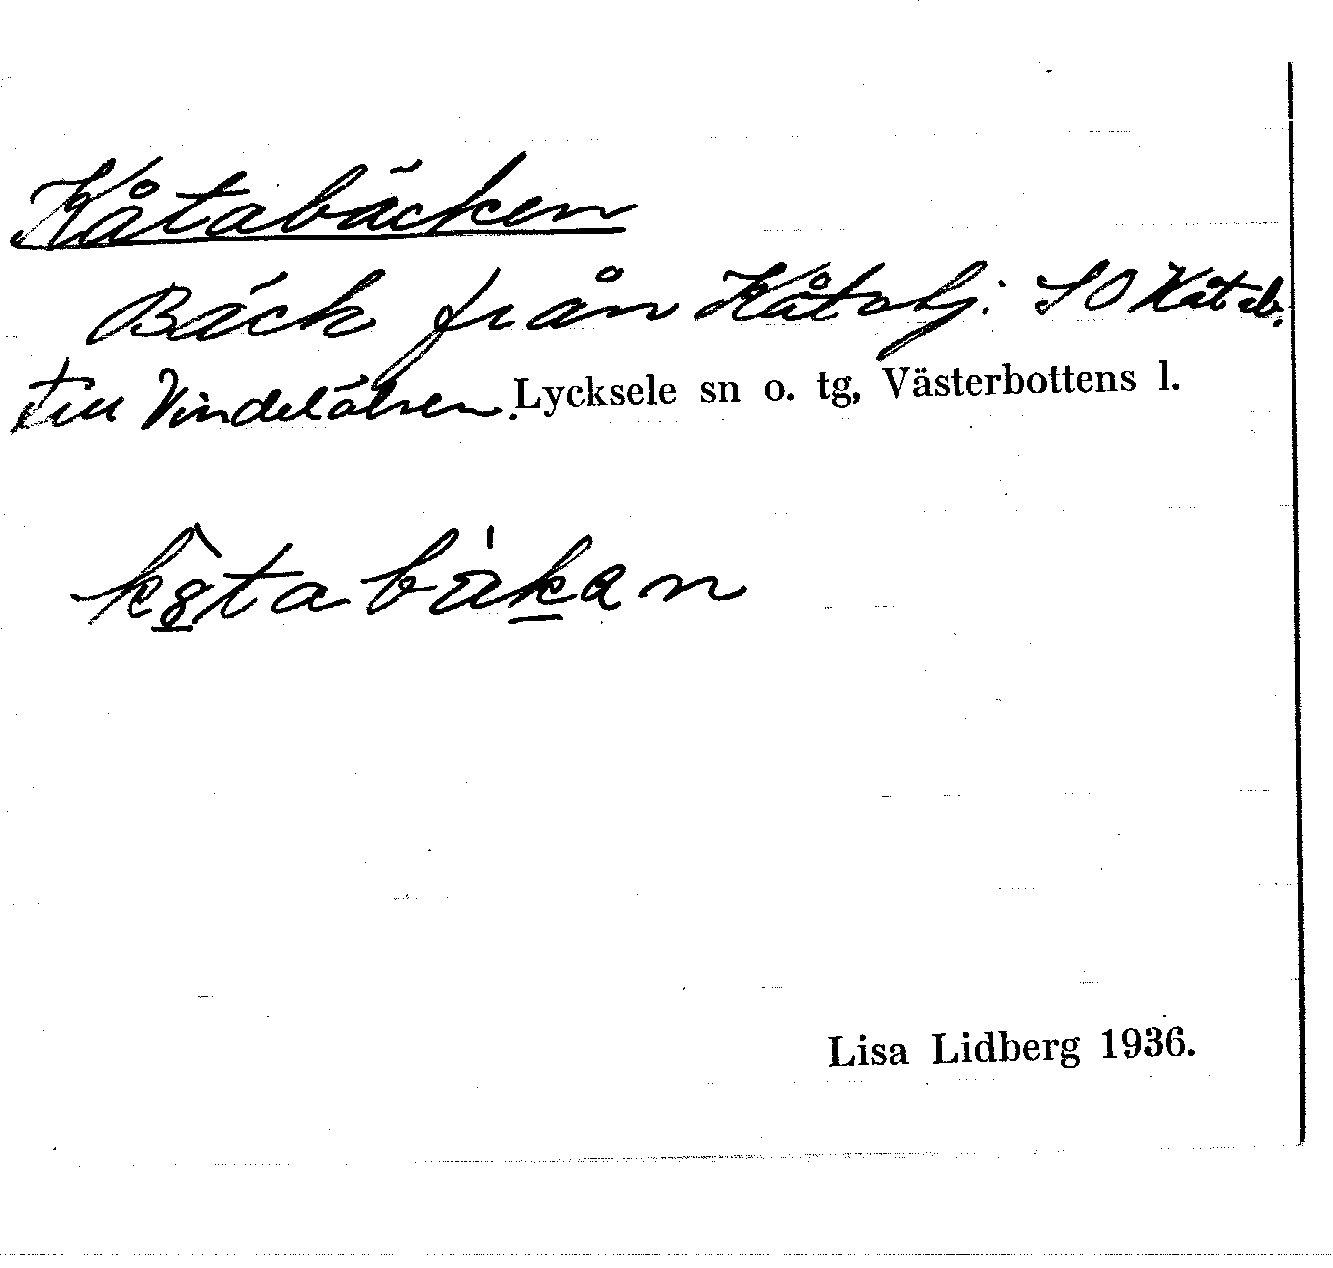 Kåtabäcken
Bäck från Kåtatj. SO Kåtab.
till Vindelälven. Lycksele sn o. tg, Västerbottens l.
Lisa Lidberg 1936.